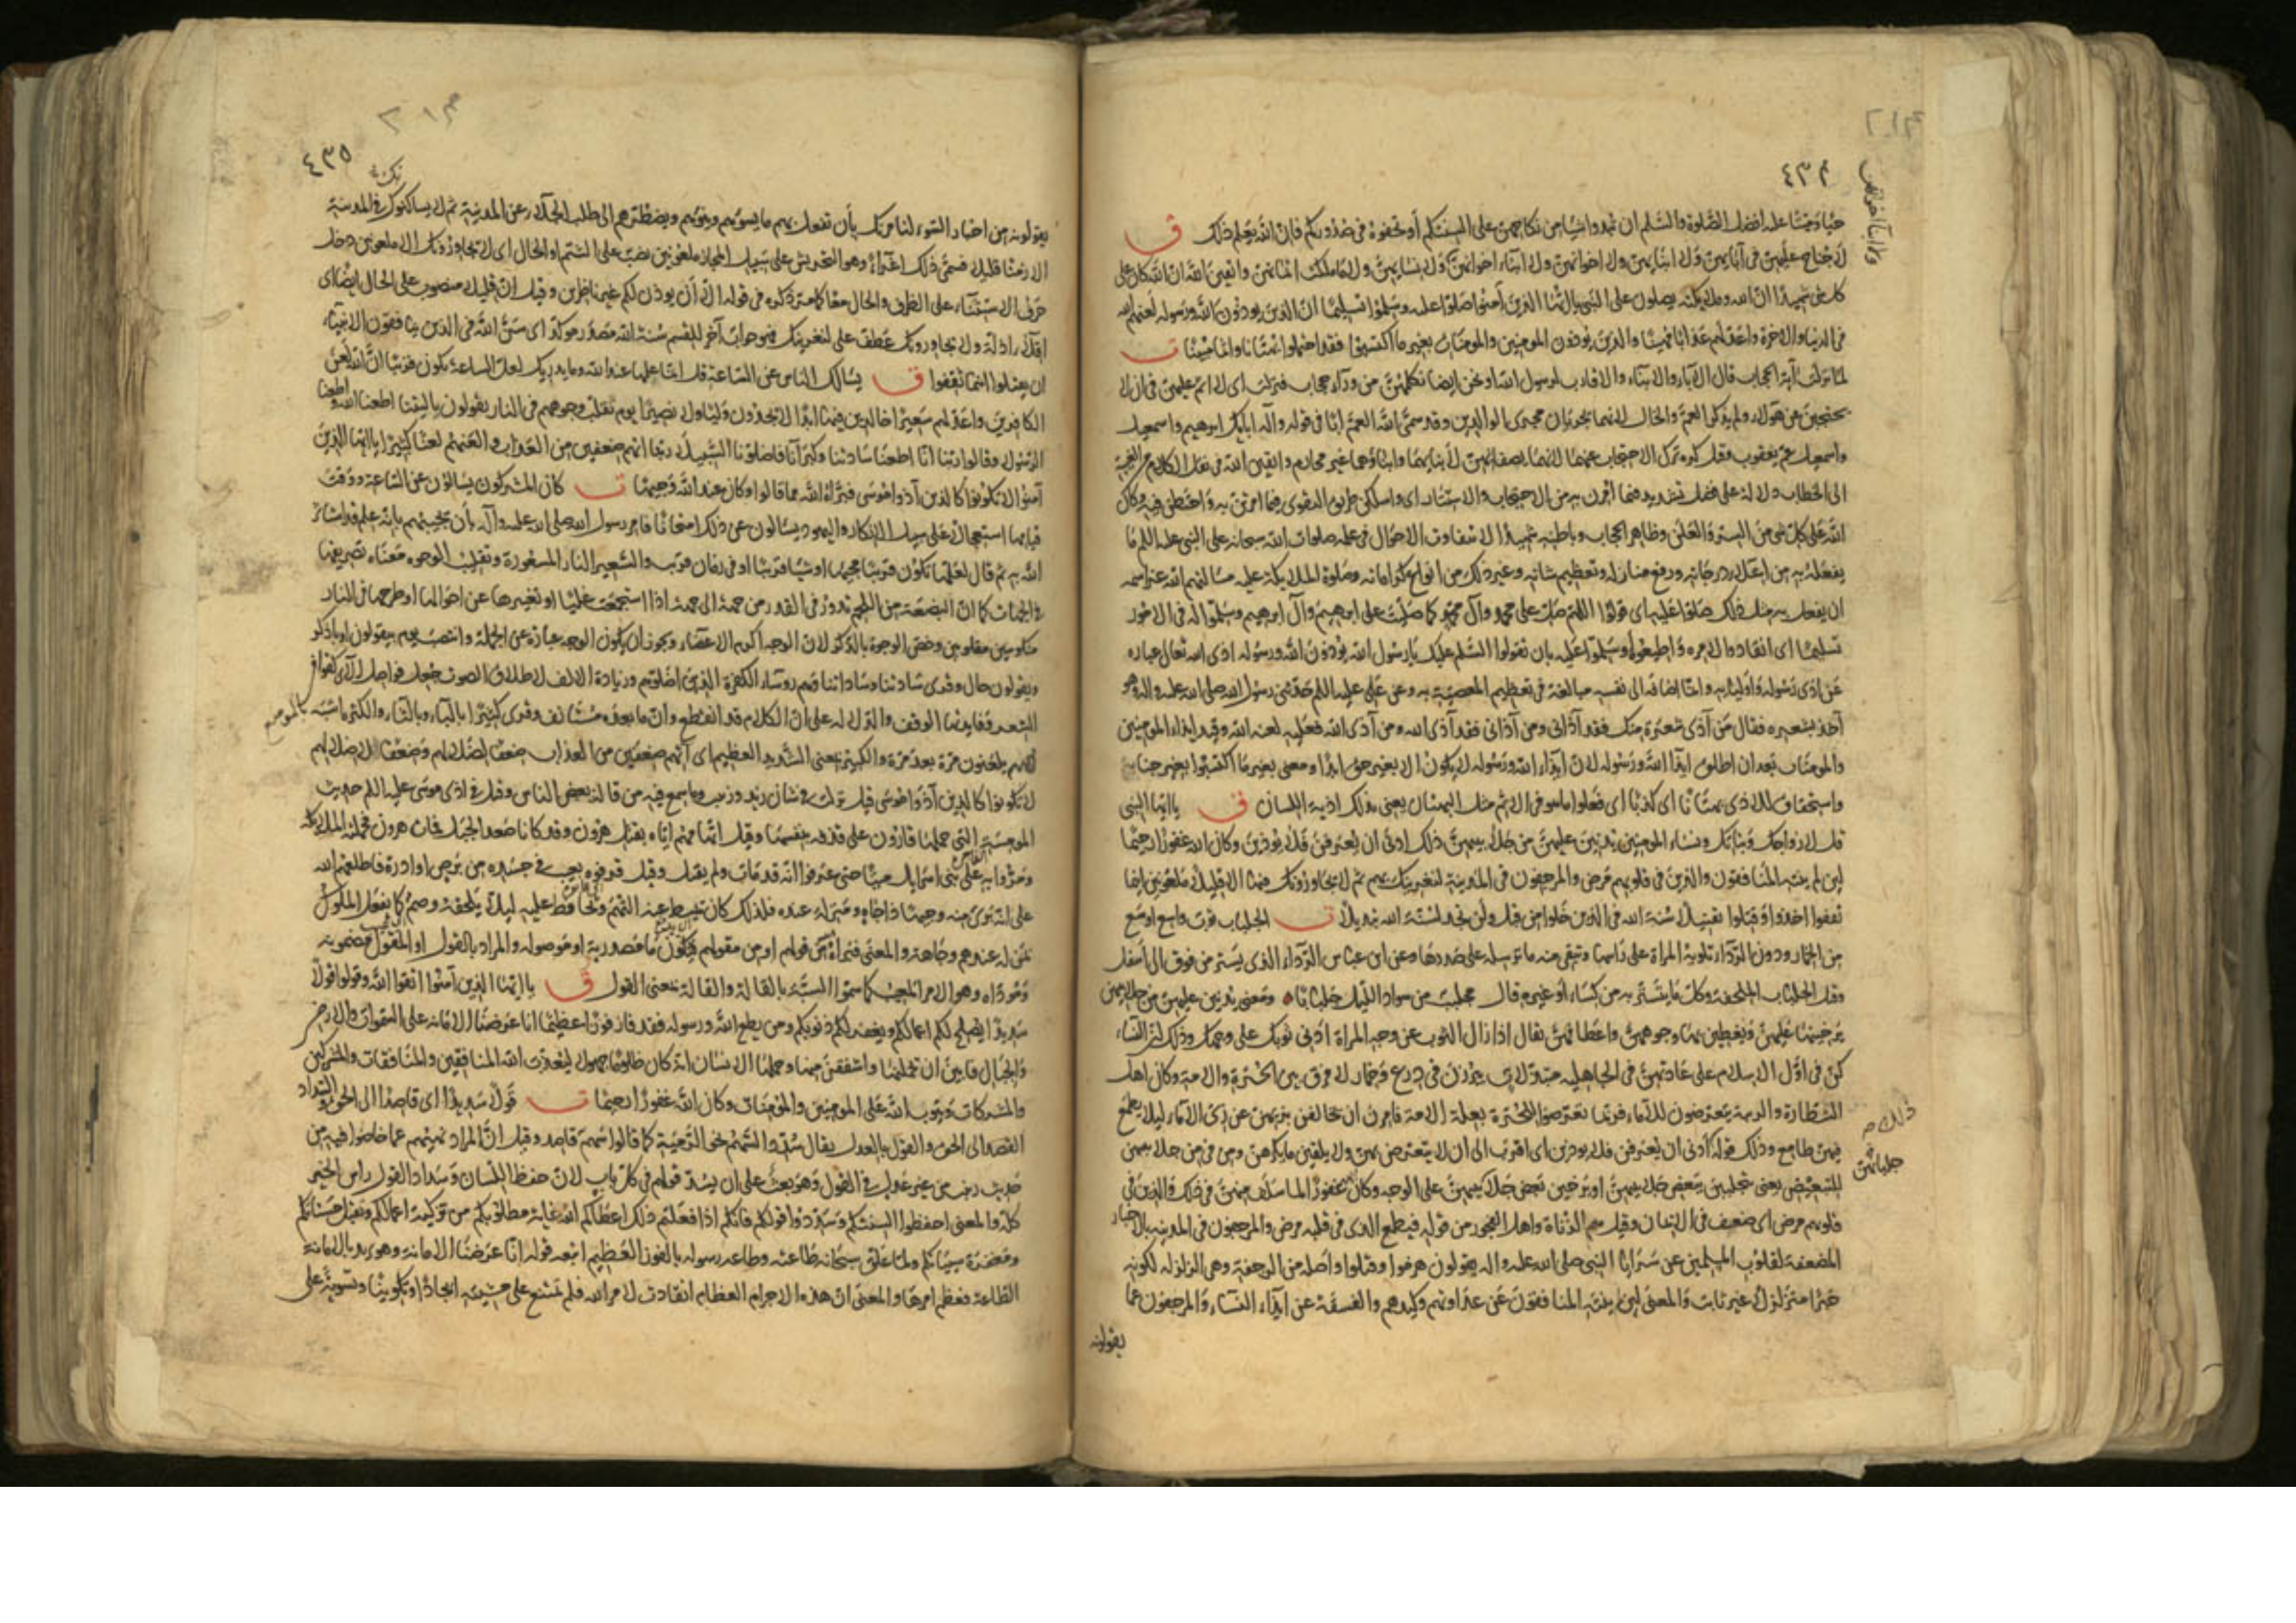 ٤٣٤
حيا وميتا عليه افضل الصلوة والسلم ان تبدوا شيئا من نكاحهن على السنتكم أو تخفوه فى صدوركم فان الله يعلم ذلك ق
لا جناح عليهن فى آبائهن ولا ابنائهن ولا اخوانهن ولا ابناء اخوانهن ولا نسائهن ولا ما ملكت ايمانهن واتقين الله ان الله كان على
كل شئ شهيدا ان الله وملائكته يصلون على النبى يا ايها الذين آمنوا صلوا عليه وسلموا تسليما ان الذين يوذون الله ورسوله لعنهم الله
فى الدنيا والاخرة واعد لهم عذابا مهينا والذين يوذون المومنين والمومنات بغير ما اكتسبوا فقد احتملوا بهتانا واثما مبينا ت
لما نزلت آية الحجاب قال الآباء والابناء والاقارب لرسول الله او نحن ايضا نكلمهن من ورآء حجاب فنزلت اى لا اثم عليهن فى ان لا
يحتجبن من هولاء ولم يذكر العم والخال لانهما يجريان مجرى الوالدين وقد سمى الله العم ابا فى قوله واله ابائك ابرهيم واسمعيل
واسمعيل عم يعقوب وقيل كره ترك الاحتجاب عنهما لانهما يصفانهن لأبنائهما وابناؤهما غير محارم واتقين الله فى نقل الكلام من الغيبة
الى الخطاب دلالة على فضل تشديد فيما أمرن به من الاحتجاب والاستتار اى واسلكن طريق التقوى فيما امرتن به واحتطن فيه وكان
الله على كل شئ من السر والعلن وظاهر الحجاب وباطنه شهيدا لا يتفاوت الاحوال فى علمه صلوات الله سبحانه على النبى عليه السلم ما
يفعله به من اعلاء درجاته ورفع منازله وتعظيم شانه وغير ذلك من انواع كراماته وصلوة الملائكة عليه مسالتهم الله عز اسمه
ان يفعل به مثل ذلك صلوا عليه اى قولوا اللهم صل على محمد وآل محمد كما صليت على ابرهيم وآل ابرهيم وسلموا له فى الامور
تسليما اى انقادوا لامره واطيعوا وسلموا عليه بان تقولوا السلم عليك يا رسول الله يوذون الله ورسوله اذى الله تعالى عباره
عن اذى رسوله واوليائه وانما اضافه الى نفسه مبالغة فى تعظيم المعصية به وعن على عليه السلم حدثنى رسول الله صلى الله عليه واله وهو
آخذ بشعره فقال من آذى شعرة منك فقد آذانى ومن آذانى فقد آذى الله ومن آذى الله فعليه لعنة الله وقيد ايذاء المومنين
والمومنات بعد ان اطلق ايذا الله ورسوله لان ايذاء الله ورسوله لا يكون الا بغير حق ابدا ومعنى بغير ما اكتسبوا بغير جناية
واستحقاق للاذى بهتانا اى كذبا اى فعلوا ما هو فى الاثم مثل البهتان يعنى بذلك اذية اللسان ق يا ايها النبى
قل لازواجك وبناتك ونساء المومنين يدنين عليهن من جلابيبهن ذلك ادنى ان يعرفن فلا يوذين وكان الله غفورا رحيما
لئن لم ينته المنافقون والذين فى قلوبهم مرض والمرجفون فى المدينة لنغرينك بهم ثم لا يجاورونك فيها الا قليلا ملعونين اينما
ثقفوا اخذوا وقتلوا تقتيلا سنة الله فى الذين خلوا من قبل ولن تجد لسنة الله تبديلا ت الجلباب ثوب واسع اوسع
من الخمار ودون الردآء تلويه المراة على راسها وتبقى منه ما ترسله على صدرها وعن ابن عباس الردآء الذى يستر من فوق الى أسفل
وقيل الجلباب الملحفة وكل ما يتستر به من كساء أو غيره قال مجلبب من سواد الليل جلبابا ومعنى يدنين عليهن من جلابيبهن
يرخينها عليهن ويغطين بها وجوههن واعطافهن يقال اذا زال الثوب عن وجه المراة ادنى ثوبك على وجهك وذلك ان النساء
كن فى اول الاسلام على عادتهن فى الجاهلية متبذلات يبرزن فى درع وخمار لا فرق بين الحرة والامة وكان اهل
الشطارة والريبة يتعرضون للاماء فربما تعرضوا للحرة بعلة الامة فامرن ان يخالفن بزيهن عن زى الاماء ليلا يطمع
فيهن طامع وذلك قوله ادنى ان يعرفن فلا يوذين اى اقرب الى ان لا يتعرض بهن ولا يلقين ما يكرهن ومن فى من جلابيبهن
للتبعيض يعنى تجلببن ببعض جلابيبهن او يرخين بعض جلابيبهن على الوجه وكان غفورا لما سلف منهن فى ذلك والذين فى
قلوبهم مرض اى ضعف فى الايمان وقيل هم الزناة واهل الفجور من قوله فيطمع الذى فى قلبه مرض والمرجفون فى المدينة بالاخبار
المضعفة لقلوب المسلمين عن سرايا النبى صلى الله عليه واله يقولون هزموا وقتلوا واصله من الرجفة وهى الزلزله لكونه
خبرا متزلزلا غير ثابت والمعنى لئن لم ينته المنافقون عن عداوتهم وكيدهم والفسقة عن ايذاء النساء والمرجفون عما
يقولونه
ولا ابناء اخواتهن
جلبابهن
٤٣٥
يقولونه من اخبار السوء لنامرنك بأن تفعل بهم ما يسوءهم وينوءهم ويضطرهم الى طلب الجلاء عن المدينة ثم لا يساكنوك فى المدينة
الا زمنا قليلا فسمى ذلك اغراء وهو التحريش على سبيل المجاز ملعونين نصب على الشتم او الحال اى لا يجاورونك الا ملعونين دخل
حرف الاستثناء على الظرف والحال معا كما مر ذكره فى قوله الا أن يوذن لكم غير ناظرين وقيل ان قليلا منصوب على الحال ايضا اى
اقلاء اذلة ولا يجاورونك عطف على لنغرينك فهو جواب آخر للقسم سنة الله مصدر موكد اى سن الله فى الذين ينافقون الانبياء
ان يقتلوا اينما ثقفوا ق يسالك الناس عن الساعة قل انما علمها عند الله وما يدريك لعل الساعة تكون قريبا ان الله لعن
الكافرين واعد لهم سعيرا خالدين فيها ابدا لا يجدون وليا ولا نصيرا يوم تقلب وجوههم فى النار يقولون يا ليتنا اطعنا الله واطعنا
الرسول وقالوا ربنا انا اطعنا سادتنا وكبرآءنا فاضلونا السبيلا ربنا اتهم ضعفين من العذاب والعنهم لعنا كثيرا يا ايها الذين
آمنوا لا تكونوا كالذين آذوا موسى فبرأه الله مما قالوا وكان عند الله وجيها ت كان المشركون يسالون عن الساعة ووقت
قيامها استعجالا على سبيل الانكار واليهود يسالون عن ذلك امتحانا فامر رسول الله صلى الله عليه وآله بأن يجيبهم بانه علم قد استاثر
الله به ثم قال لعلها تكون قريبا مجيئها او شيئا قريبا او فى زمان قريب والسعير النار المسعورة وتقليب الوجوه معناه تصريفها
فى الجهات كما ان البضعة من اللحم تدور فى القدر من جهة الى جهة اذا استجمعت غليا او تغييرها عن احوالها او طرحها فى النار
منكوسين مقلوبين وخص الوجوه بالذكر لان الوجه اكرم الاعضاء ويجوز ان يكون الوجه عبارة عن الجملة وانتصب يوم بيقولون او باذكر
ويقولون حال وقرى سادتنا وساداتنا وهم روساء الكفرة الذين اضلوهم وزيادة الالف لاطلاق الصوت جعل فواصل الآى كقوافى
الشعر وفايدتها الوقف والدلاله على ان الكلام قد انقطع وان ما بعده مستانف وقرى كثيرا بالباء وبالثاء والكثره اشبه بالموضع
لانهم يلعنون مرة بعد مرة والكبير بمعنى الشديد العظيم اى آتهم ضعفين من العذاب ضعفا لضلالهم وضعفا لاضلالهم
لا تكونوا كالذين آذوا موسى قيل نزلت فى شان زيد وزينب وما سمع فيه من قالة بعض الناس وقيل فى اذى موسى عليه السلم حديث
المومسة التى حملها قارون على قذفه بنفسها وقيل اتهامهم اياه بقتل هرون وقد كانا صعدا الجبل فمات هرون فحملته الملائكة
ومروا به على بنى اسرائيل ميتا حتى عرفوا انه قد مات ولم يقتل وقيل قرفوه بعيب فى جسده من برص او ادرة فاطلعهم الله
على انه برئ منه وجيها ذا جاه ومنزلة عنده فلذلك كان يميط عنه التهم ويحافظ عليه ليلا يلحقه وصم كما يفعل الملوك
بمن له عندهم وجاهة والمعنى فبرأه من قولهم او من مقولهم فيكون ما مصدرية او موصوله والمراد بالقول او المقول مضمونه
وموداه وهو الامر المعيب كما سموا السبة بالقالة والقالة بمعنى القول ق يا ايها الذين آمنوا اتقوا الله وقولوا قولا
سديدا يصلح لكم اعمالكم ويغفر لكم ذنوبكم ومن يطع الله ورسوله فقد فاز فوزا عظيما انا عرضنا الامانة على السموات والارض
والجبال فابين ان يحملنها واشفقن منها وحملها الانسان انه كان ظلوما جهولا ليعذب الله المنافقين والمنافقات والمشركين
والمشركات ويتوب الله على المومنين والمومنات وكان الله غفورا رحيما ت قولا سديدا اى قاصدا الى الحق والسداد
القصد الى الحق والقول بالعدل يقال سدد السهم نحو الرمية كما قالوا سهم قاصد وقيل ان المراد نهيهم عما خاضوا فيه من
حديث زينب من غير عدل فى القول وهو بعث على ان يسد قولهم فى كل باب لان حفظ اللسان وسداد القول راس الخير
كله والمعنى احفظوا السنتكم وسددوا قولكم فانكم اذا فعلتم ذلك اعطاكم الله غاية مطلوبكم من تزكية اعمالكم وتقبل حسناتكم
ومغفرة سيئاتكم ولما علق سبحانه طاعته وطاعة رسوله بالفوز العظيم اتبعه قوله انا عرضنا الامانة وهو يريد بالامانة
الطاعة فعظم امرها والمعنى ان هذه الاجرام العظام انقادت لامر الله فلم تمتنع على مشيته ايجادا وتكوينا وتسوية على